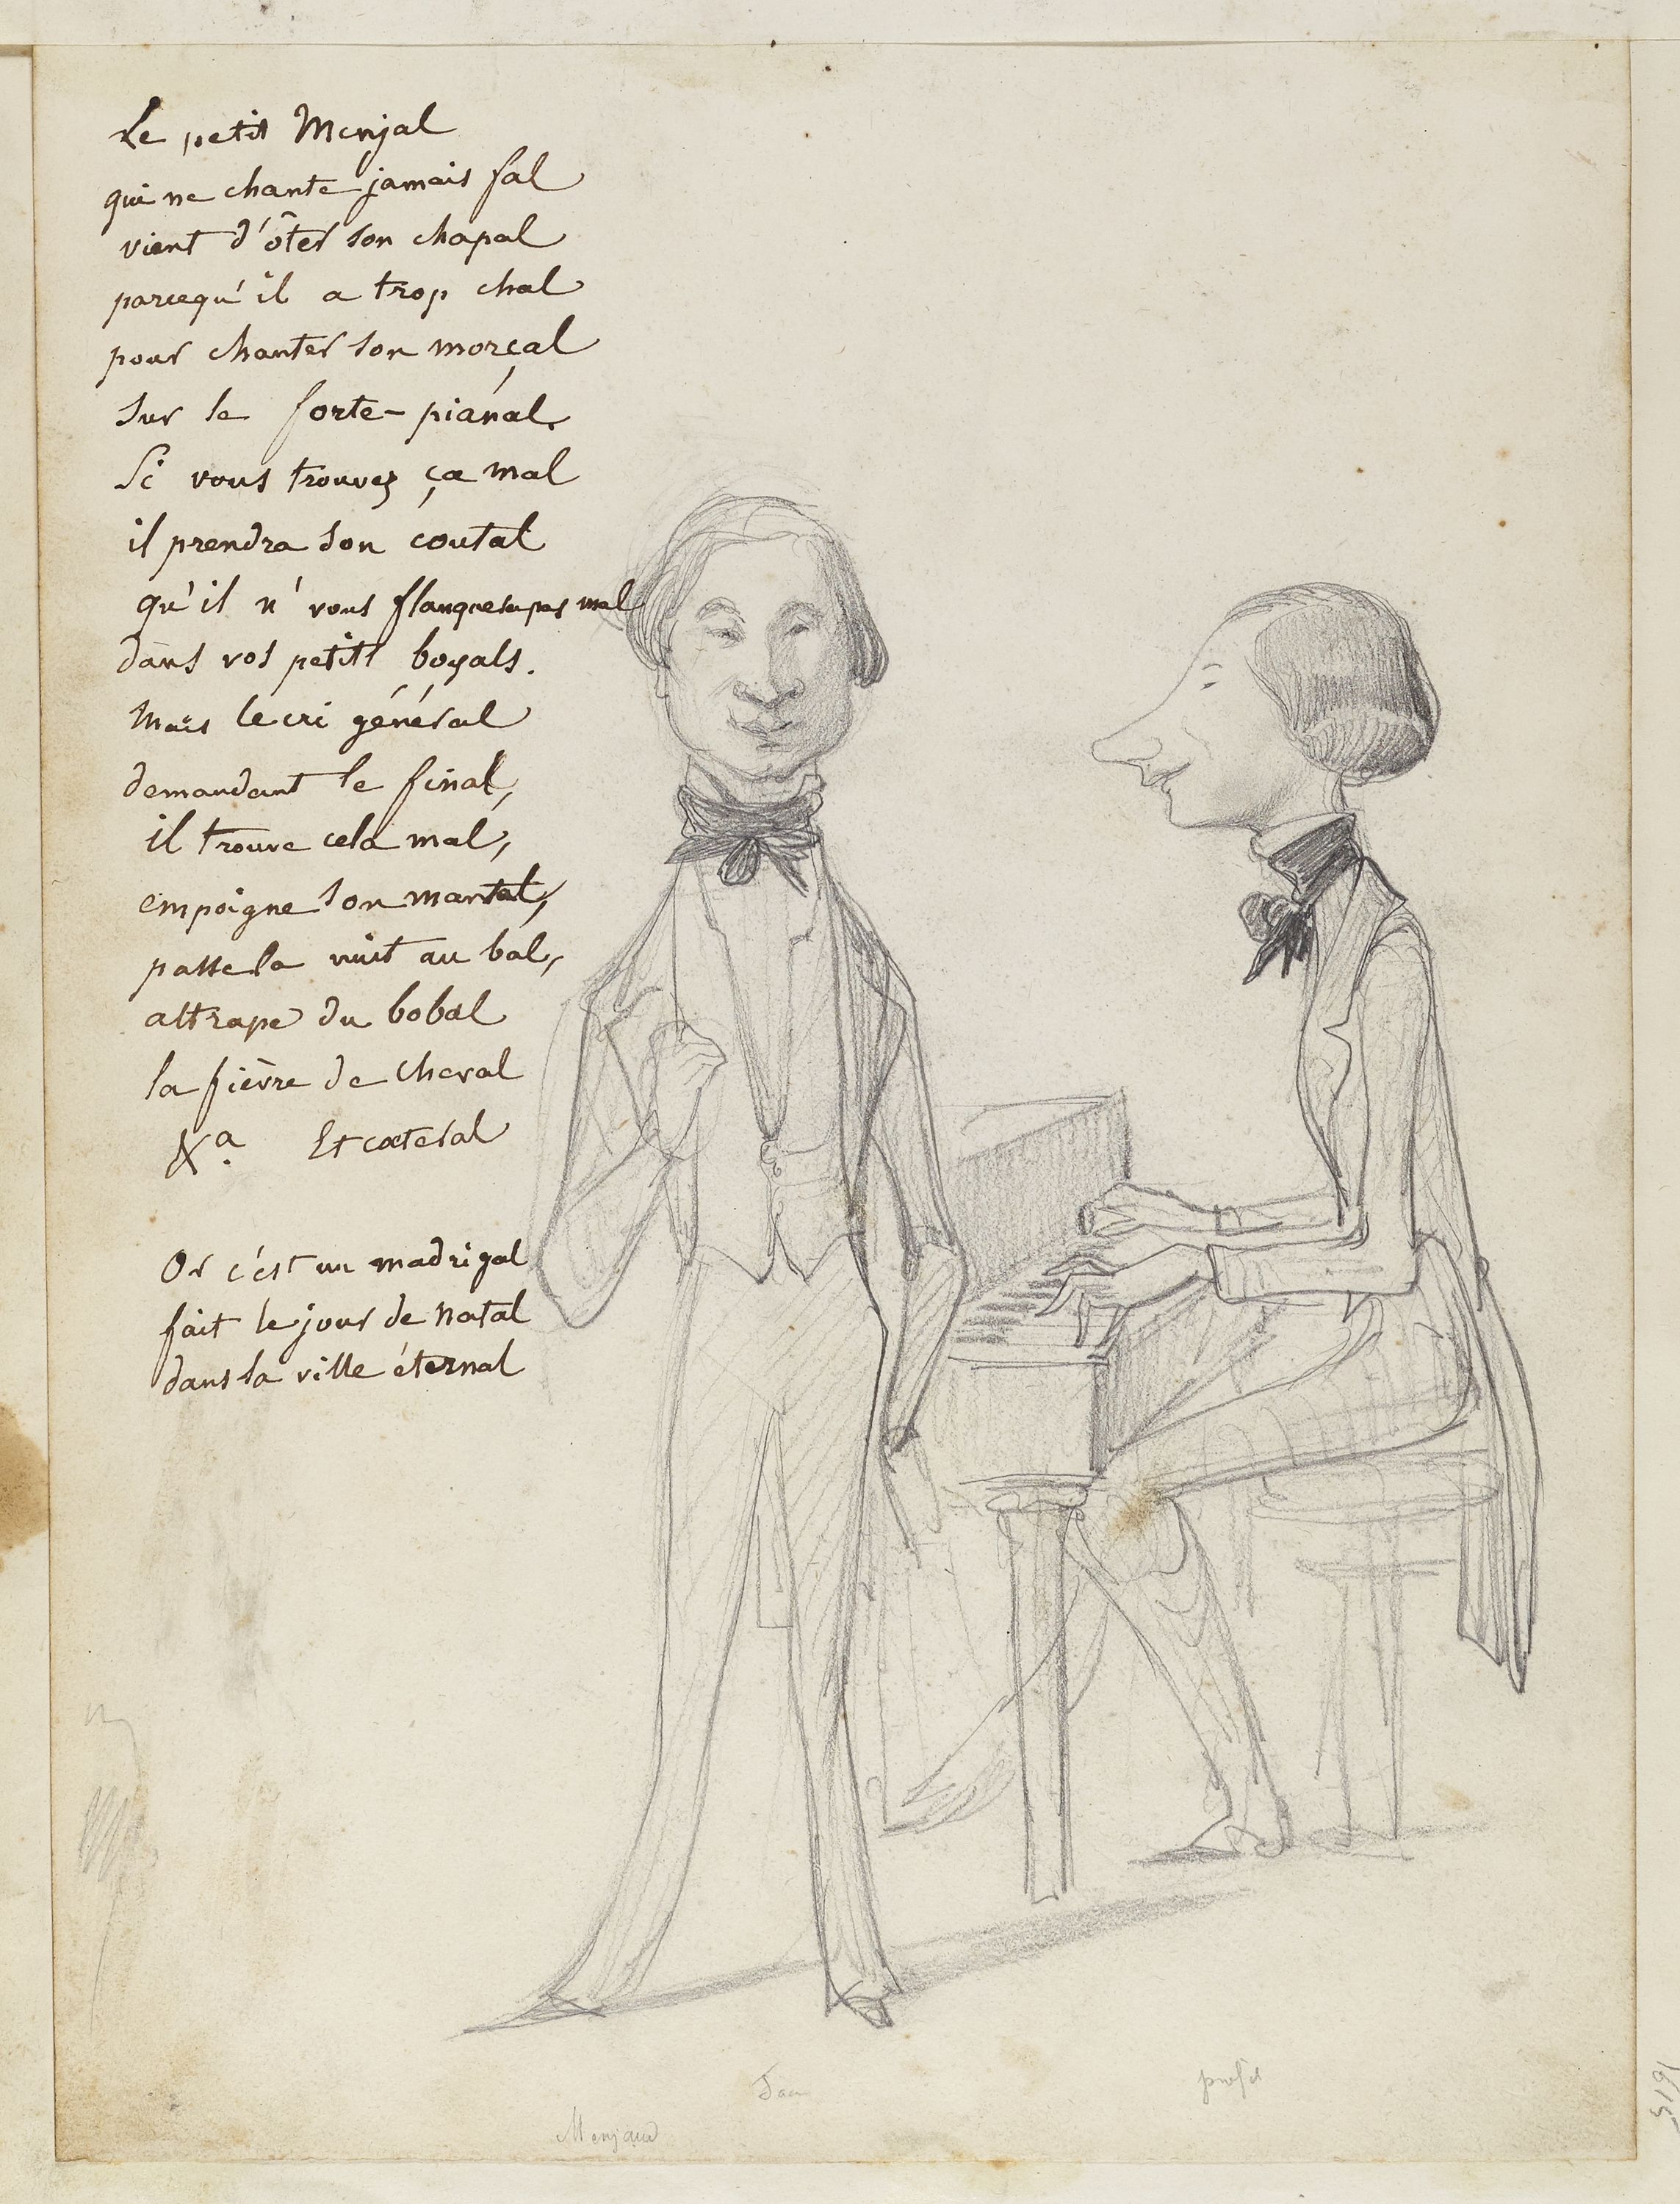 Le petit Menjal
qui ne chante jamais fal
vient d'ôter son chapal
parcequ'il a trop chal
pour chanter son morçal
sur le forte-piánal.
Si vous trouvez ça mal
il prendra son coutal
qu'il n' vous flanquera pas mal
dans vos petits boyals.
Mais le cri général
demandant le final,
il trouve cela mal,
empoigne son mantal,
passe la nuit au bal,
attrape du bobal
la fièvre de cheval
&a. Et cœteral
Or c'est un madrigal
fait le jour de natal
dans la ville éternal
profil
Menjaud